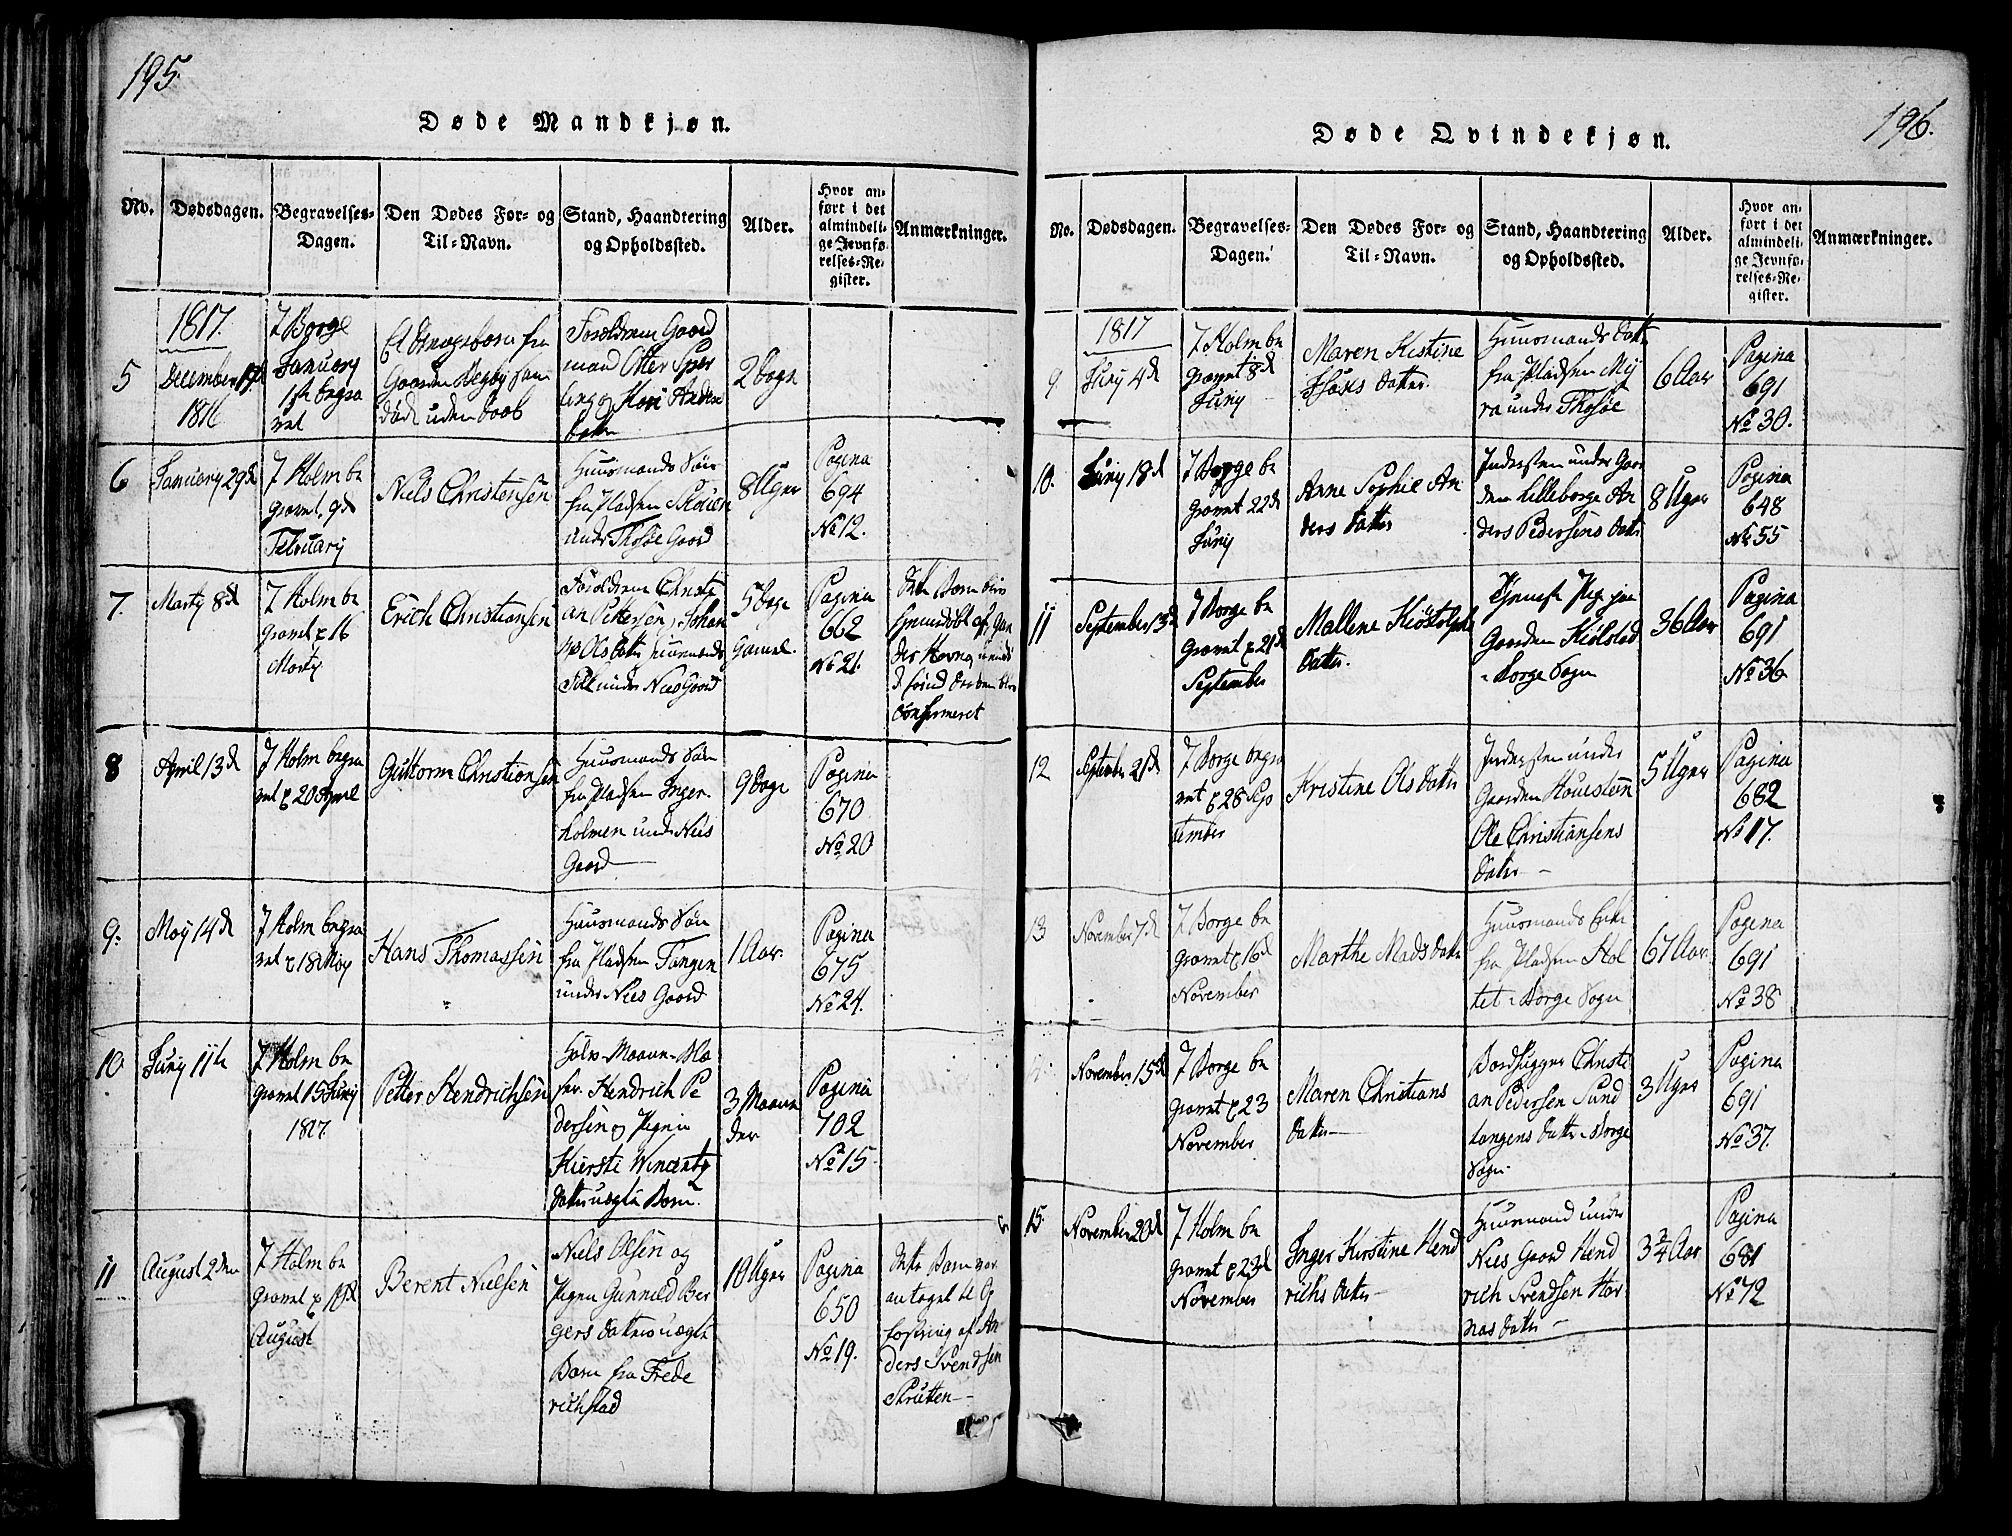 195.
Døde Mandkjøn.
No.
Dødsdagen.
Begravelses-
Dagen.
Den Dødes For- og
Til-Navn.
Stand, Haandtering
og Opholdssted.
Alder.
Hvor an-
ført i det
almindeli-
ge Jevnfø-
relses-Re-
gister.
Anmærkninger.
5
1817.
December
1816
I Borge
January
begra
vet
fra
Gaarden
død uden Daab
Forældrene Gaard
mand
og
Datter
2 Dage
6
January 29d
I Holm be
gravet 9d
February
Niels Christensen
Huusmands Søn
fra Pladsen
under Thosøe Gaard
8 Uger
Pagina
694
No 12.
7.
Marty 8d
I Holm be
gravet 16
Marty
Erich Christiansen
Forældrene Christi
an Pettersen, Johan
Ols Datter Huusmands
under Nies Gaard
5 Dage
Gamel.
Pagina
662
No 21.
Dette Barn blev
hjemmedøbt af
Confirmeret
8
April 13d
I Holm begra
vet 20 April
Guttorm Christiansen
Huusmands Søn
fra Pladsen Inger-
holmen under Nies
Gaard
9 Dage
Pagina
670
No 20
9.
May 14d
I Holm begra
vet 18 May
Hans Thomassen
Huusmands Søn
fra Pladsen Tangen
under Nies Gaard
1 Aar.
Pagina
675
No 24.
10.
Juny 11te
I Holm be
gravet 15 Juny
1817.
Petter Hendrichsen
Hendrich Pe
dersen og Pigen
Kiersti Wincents
Datter uægte Barn.
3 Maane
der
Pagina
702
No 15.
11
August 2den
I Holm be
gravet 10d
August
Berent Nielsen
Niels Olsen og
Pigen Gunnild Ber
gers Datter uægte
Barn fra Frede
richstad
10 Uger
Pagina
650
No 19.
Dette Barn var
antaget til Op
fostring af An
ders Svendsen
Strutten
196.
Døde Qvindekjøn.
No.
Dødsdagen.
Begravelses-
Dagen.
Den Dødes For- og
Til-Navn.
Stand, Haandtering
og Opholdssted.
Alder.
Hvor an-
ført i det
almindeli-
ge Jevnfø-
relses-Re-
gister.
Anmærkninger.
9.
1817
Juny 4d
I Holm be
gravet 8d
Juny
Maren Kistine
Datter.
Huusmands Datter
fra Pladsen
under Thosøe
6 Aar
Pagina
691
No 30.
10.
Juny 18d
I Borge be
gravet 22d
Juny
Anne Sophie An
ders Datter
Indersten under Gaar
den Lilleborge An
ders Pedersens Datter
8 Uger
Pagina
648
No 55
11
September 13d
I Borge be
gravet 21d
September
Mallene Kiøstolphs
Datter.
Tjeneste Pige paa
Gaarden Kiølstad
Borge Sogn
36 Aar
Pagina
691
No 36
12
September 21d
I Borge begra
vet 28 Sep
tember
Kristine Ols Datter
Indersten under
Gaarden Houestøen
Ole Christiansens
Datter
5 Uger
Pagina
682
No 17.
13
November 7d
I Borge be
gravet 16d
November
Marthe Mads Datter
Huusmands Enke
fra Pladsen Hol
tet Borge Sogn
67 Aar.
Pagina
691
No 38
November 15d
I Borge be
gravet 23
November
Maren Christians
Datter
Bordhugger Christi
an Pedersen Sund
løngens Datter Borge
Sogn.
3 Uger
Pagina
691
No 37.
15.
November 20d
I Holm be
gravet 23d
November
Inger Kirstine Hend
richs Datter
Huusmand under
Nies Gaard Hend
rich Svendsen Hor
nas Datter
3 2/4 Aar
Pagina
681
No 72